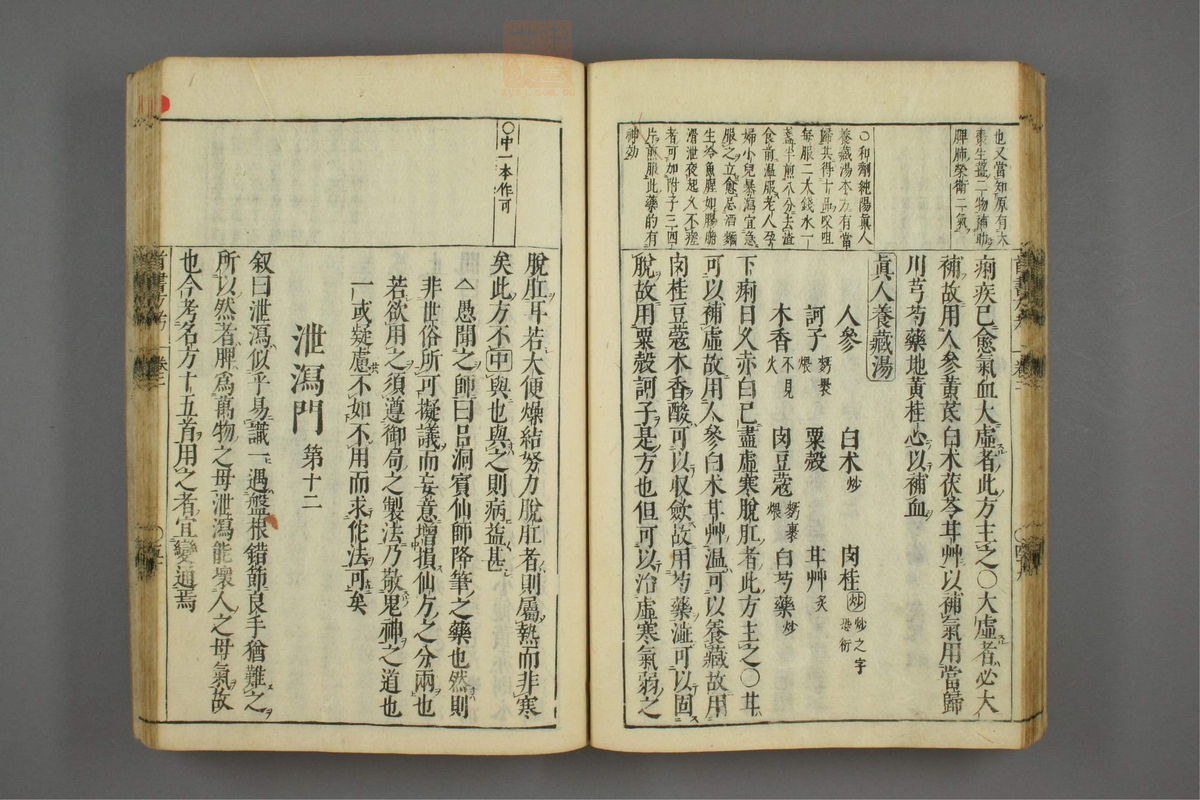 也又當知原有大
棗生薑二物補助
脾肺榮衛二氣
○和劑純陽真人
養藏湯本方有當
歸共得十品㕮咀
每服二大錢水一
盞半煎八分去渣
食前溫服老人孕
婦小兒暴瀉宜急
服之立愈忌酒麵
生冷魚腥如臟腑
滑泄夜起久不瘥
者可加附子三四
片煎服此藥的有
神効
痢疾已愈氣血大虛者此方主之○大虛者必大
補故用人參黃芪白术茯苓甘艸以補氣用當歸
川芎芍藥地黃桂心以補血
真人養藏湯
人參 白术炒 肉桂炒 炒之字恐衍
訶子 麪裹煨 粟殼 甘艸炙
木香 不見火 肉豆蔻 麪裹煨 白芍藥炒
下痢日久赤白已盡虛寒脫肛者此方主之○甘
可以補虛故用人參白术甘艸溫可以養藏故用
肉桂豆蔻木香酸可以收斂故用芍藥澁可以固
脫故用粟殼訶子是方也但可以治虛寒氣弱之
首書方考 卷二 ○四十九
○中一本作可
脫肛耳若大便燥結努力脫肛者則屬熱而非寒
矣此方不中與也與之則病益甚
愚聞之師曰呂洞賓仙師降筆之藥也然則
非世俗所可擬議而妄意增損仙方之分兩也
若欲用之須遵御局之製法乃敬鬼神之道也
一或疑慮不如不用而求佗法可矣
泄瀉門 第十二
叙曰泄瀉似乎易識一遇盤根錯節良手猶難之
所以然者脾爲萬物之母泄瀉能壞人之母氣故
也合考名方十五首用之者宜變通焉
首書方考 卷二 ○五十